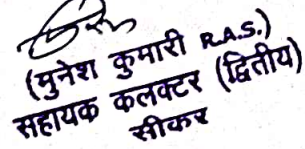 (मुनेश कुमारी R.A.S.)
सहायक कलक्टर (द्वितीय)
सीकर